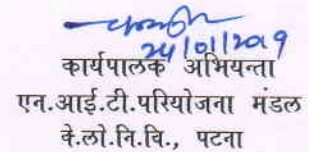 24/01/2019
कार्यपालक अभियन्ता
एन.आई.टी.परियोजना मंडल
के.लो.नि.वि., पटना